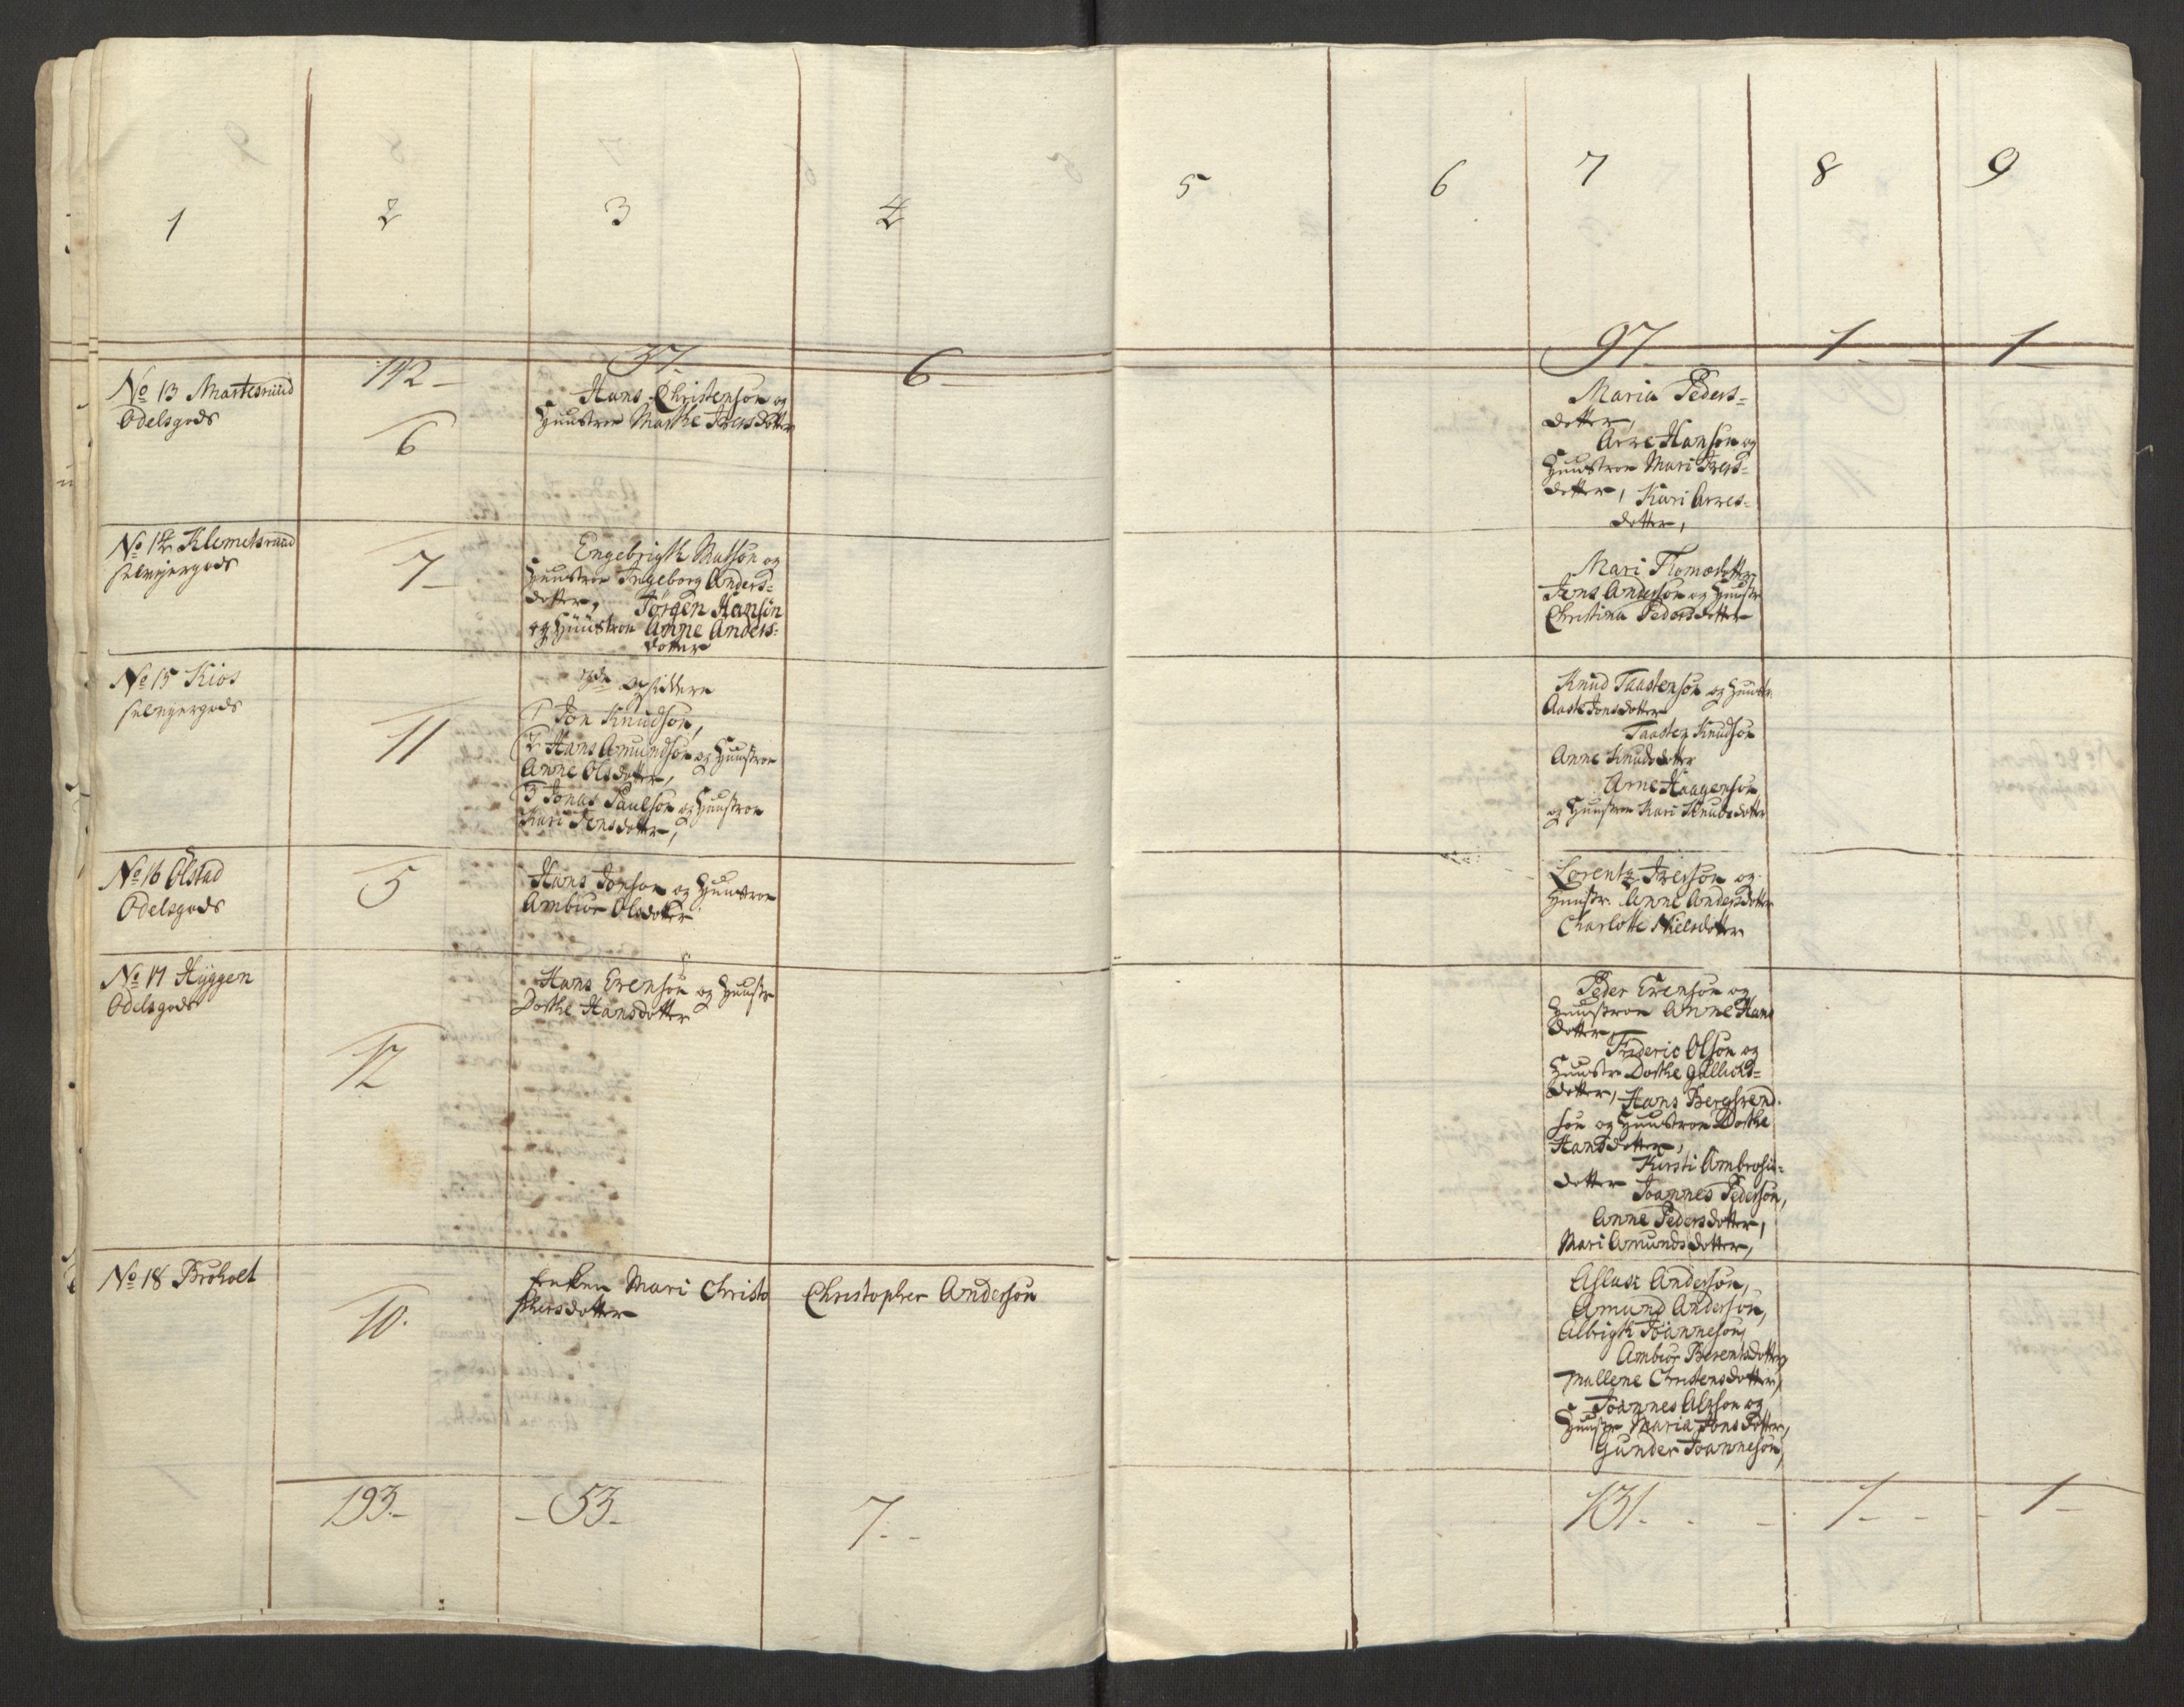 1
2
3
4
5
6
7
8
9
142
37
6
97
1
1
No 13 Martesruud
Odelsgods
6
Hans Christenson og
Huustroe Marthe Iversdotter
Maria Peders=
dotter,
Arve Hanson og
Huustroe Mari Ivers=
dotter, Kari Arves=
dotter,
No 14 Klemetsruud
selveyergods
7
Engebrigth Matson og
Huustroe Ingeborg Anders=
dotter, Jörgen Hansön
og Huustroe Anne Anders=
dotter
Mari Thomædotter,
Jens Anderson og Huustr
Christina Pedersdotter
No 15 Kios
selveyergods
11
opsiddere
1 Jon Knudson,
2 Hans Amundson og Huustroe
Anne Olsdotter,
3 Jonas Paulson og Huustroe
Kari Jensdotter,
Knud Taastenson og Huustr.
Aaste Jonsdotter
Taasten Knudson
Anne Knudsdotter
Arne Haagenson
og Huustroe Kari Knudsdotter
No 16 Ölstad
Odelsgods
5
Hans Jonson og Huustroe
Ambior Olsdotter
Lorentz Iverson og
Huustr. Anne Andersdotter
Charlotte Nielsdotter
No 17 Hyggen
Odelsgods
12
Hans Evenson og Huustr
Dorthe Hansdotter
Peder Evenson og
Huustroe Anne Hans
dotter,
Frederic Olson og
Huustr Dorthe Gullichs=
dotter, Hans Bergsvend
son og Huustroe Dorthe
Hansdotter,
Kirsti Ambrosii=
dotter Joannes Pederson,
Anne Pedersdotter,
Mari Amundsdotter,
No 18 Broholt
10.
Enken Mari Christo
phersdotter
Christopher Anderson
Aslak Anderson,
Amund Anderson,
Albrigth Joanneson,
Ambior Berentsdotter,
Mallene Christensdotter,
Joannes Alxson og
Huustr Maria Jonsdotter,
Gunder Joanneson,
193
53
7
131
1
1